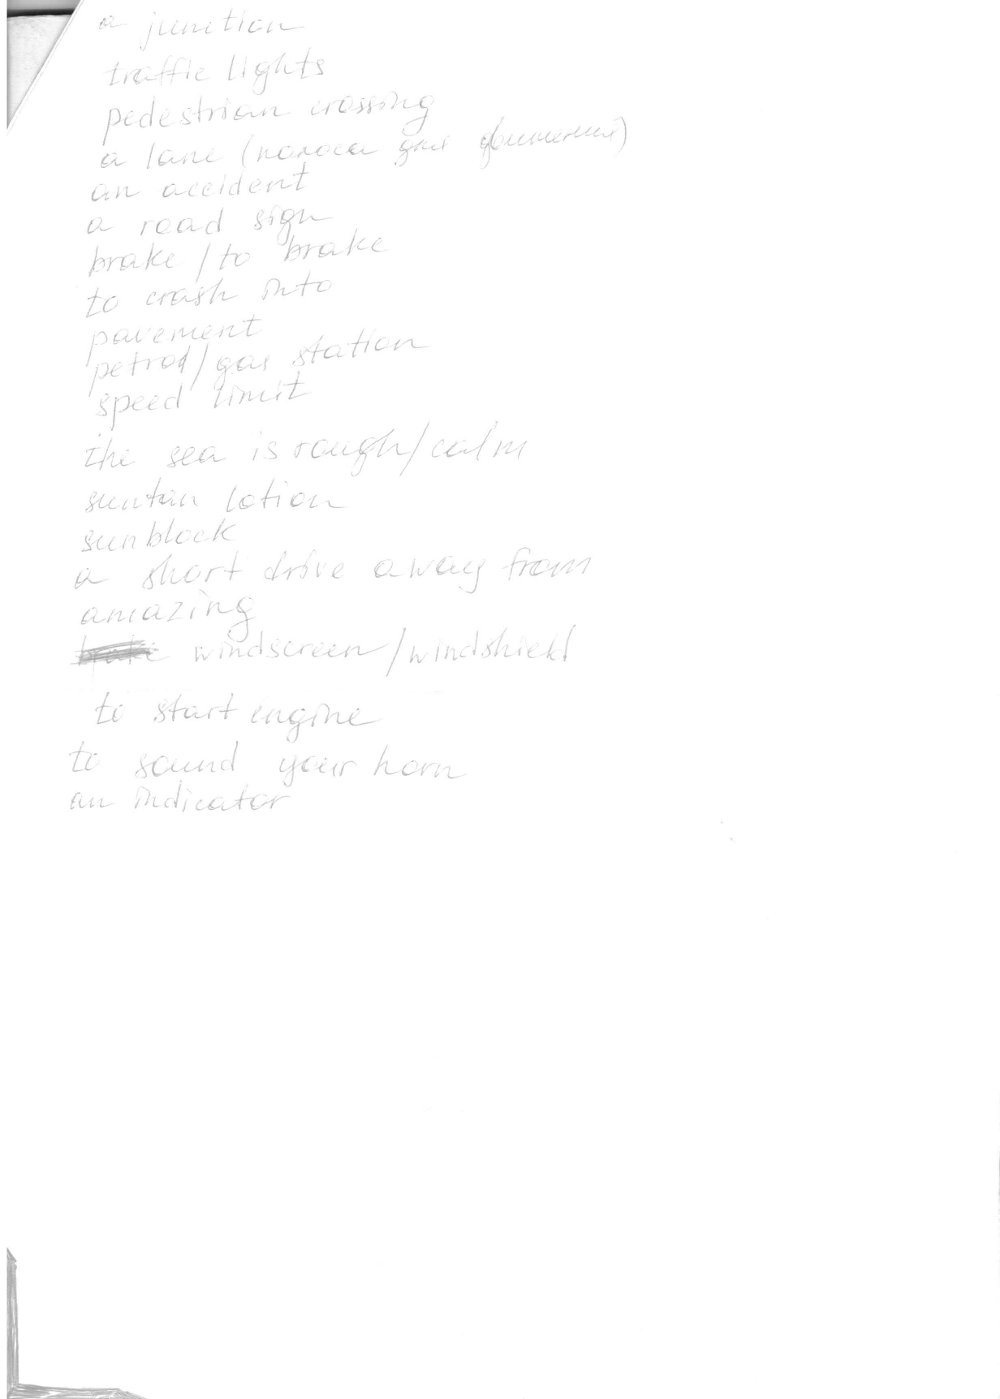 a junction
traffic lights
pedestrian crossing
a lane (полоса для движения)
an accident
a road sign
brake / to brake
to crash into
pavement
petrol/gas station
speed limit
the sea is rough/calm
suntan lotion
sunblock
a short drive away from
amazing
windscreen/windshield
to start engine
to sound your horn
an indicator